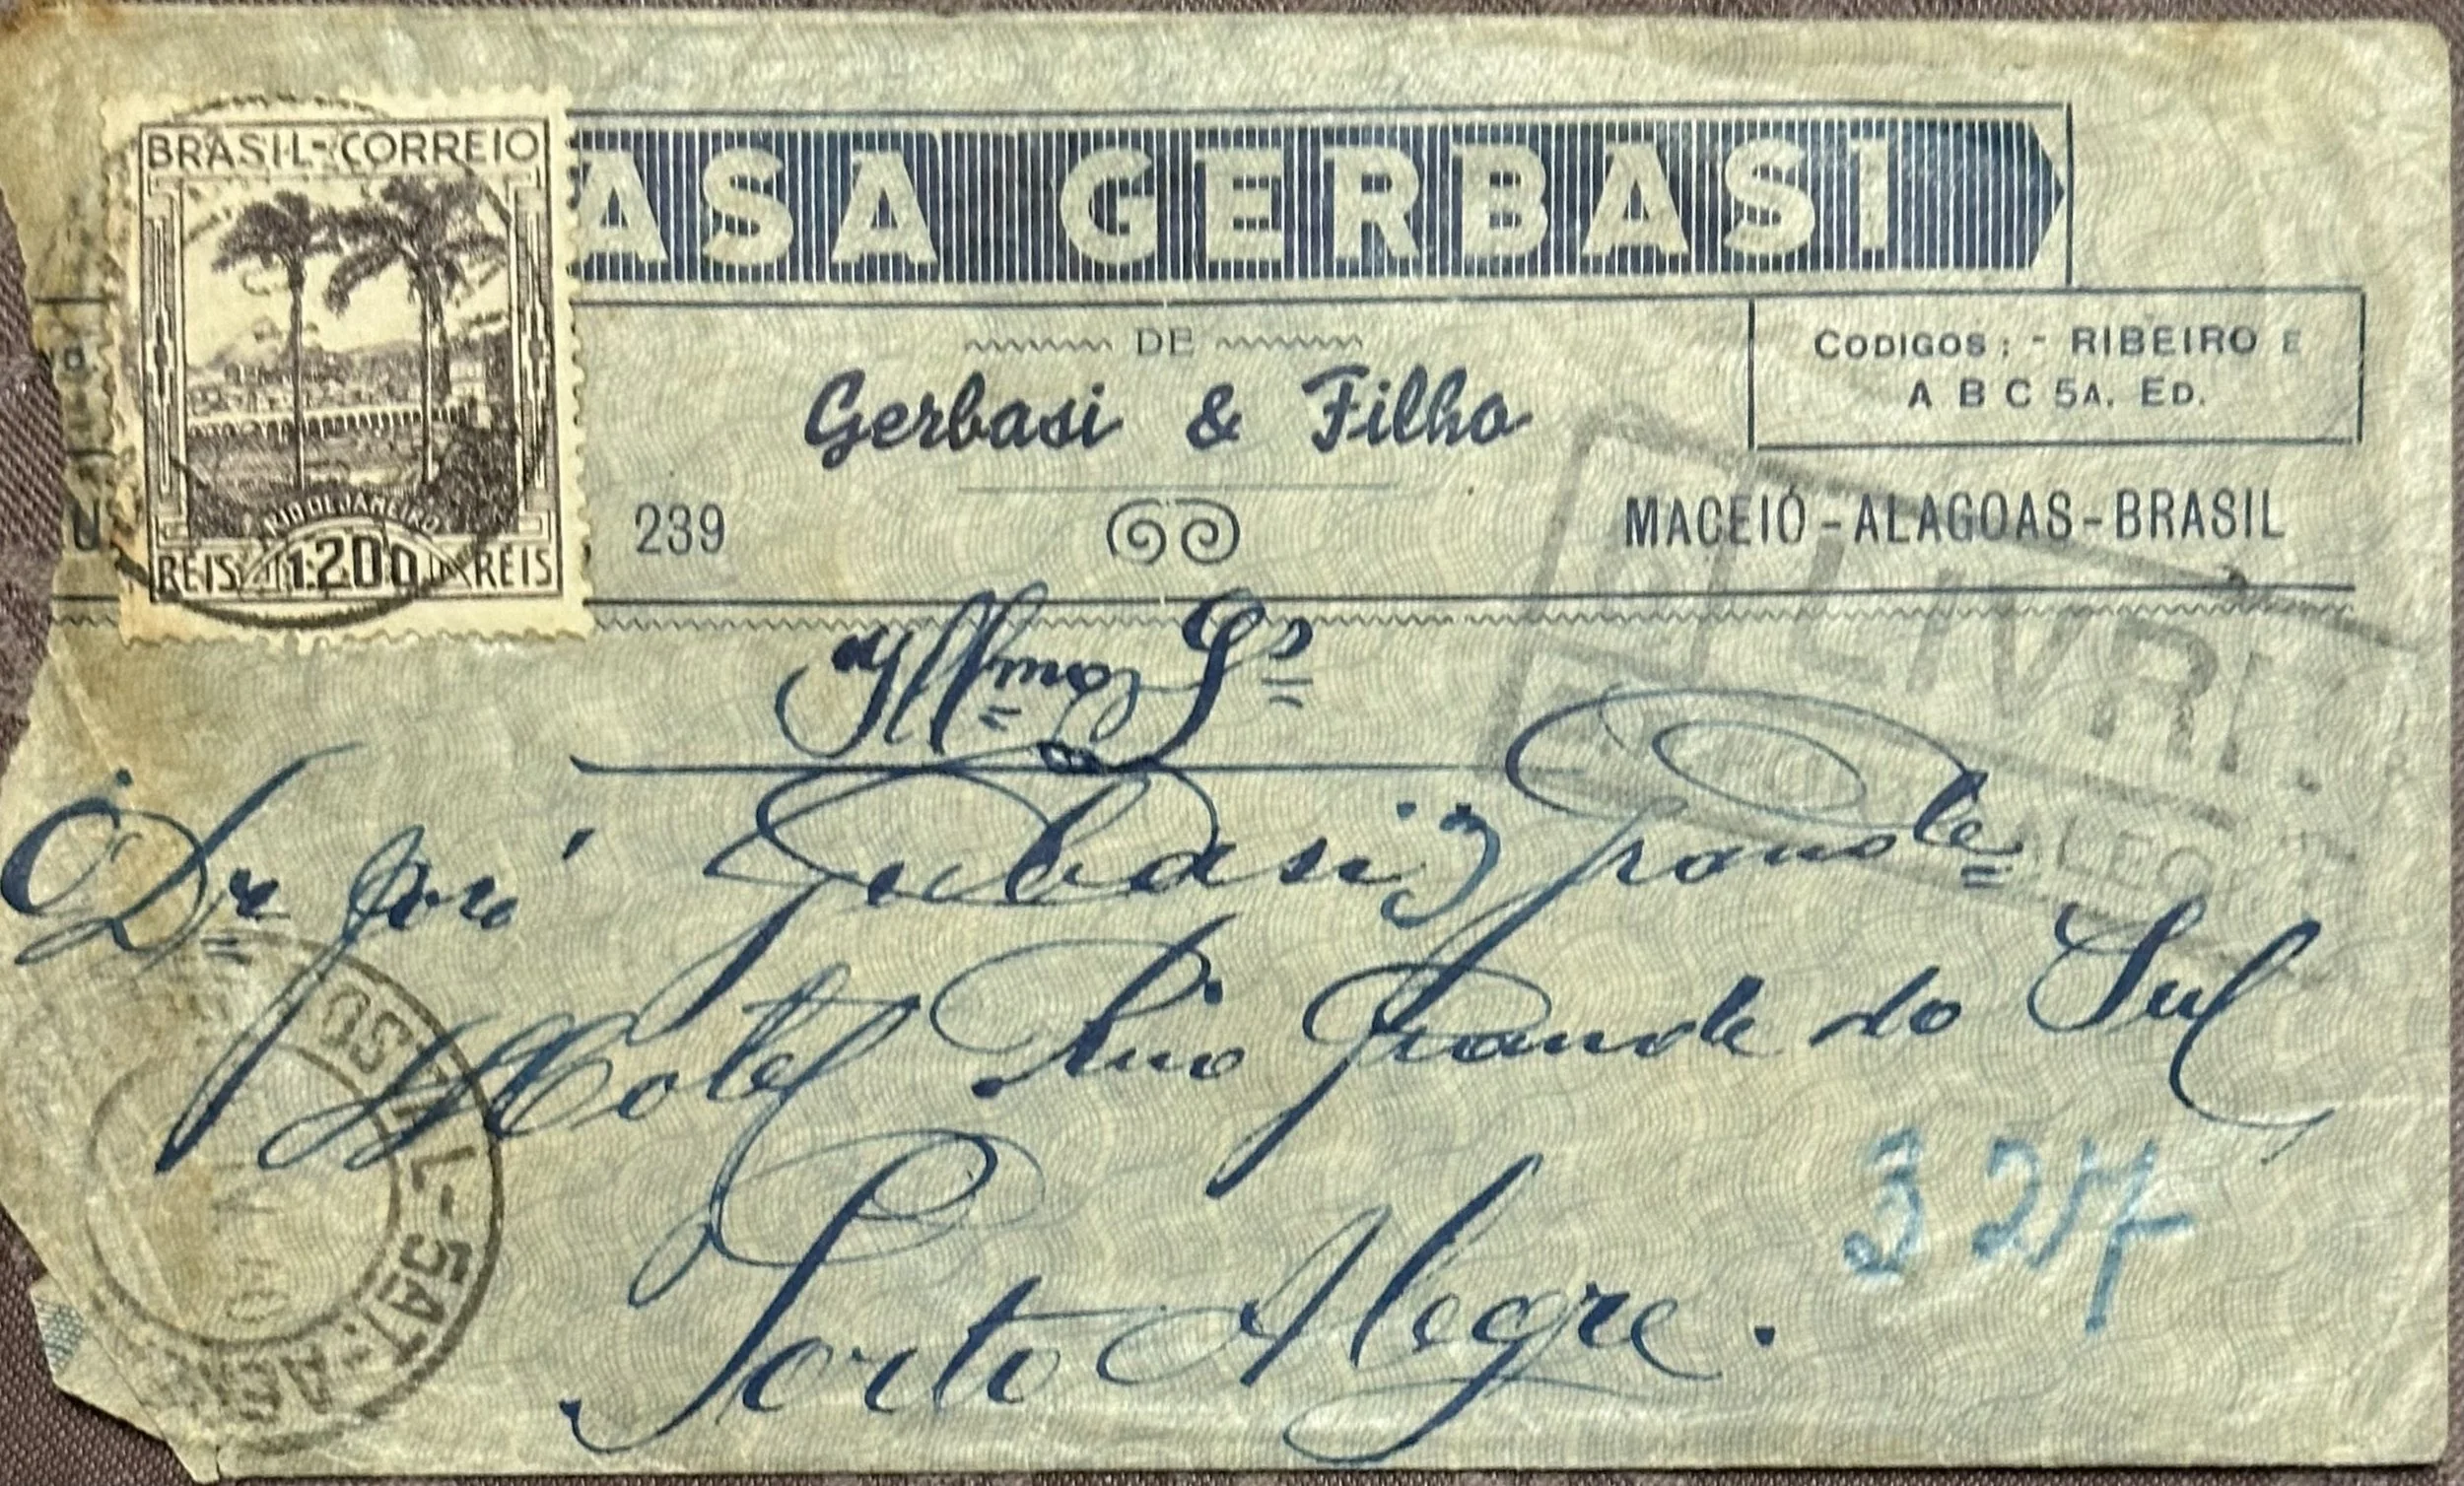 BRASIL-CORREIO
RIO DE JANEIRO
RÉIS 1200 RÉIS
ASA GERBASI
DE
Gerbasi & Filho
CODIGOS: - RIBEIRO E
A B C 5A. ED.
239
MACEIÓ-ALAGOAS-BRASIL
LIVRE
Illmo Sr
Dr José Gerbasi Grande
Hotel Rio Grande do Sul
Porto Alegre.
327